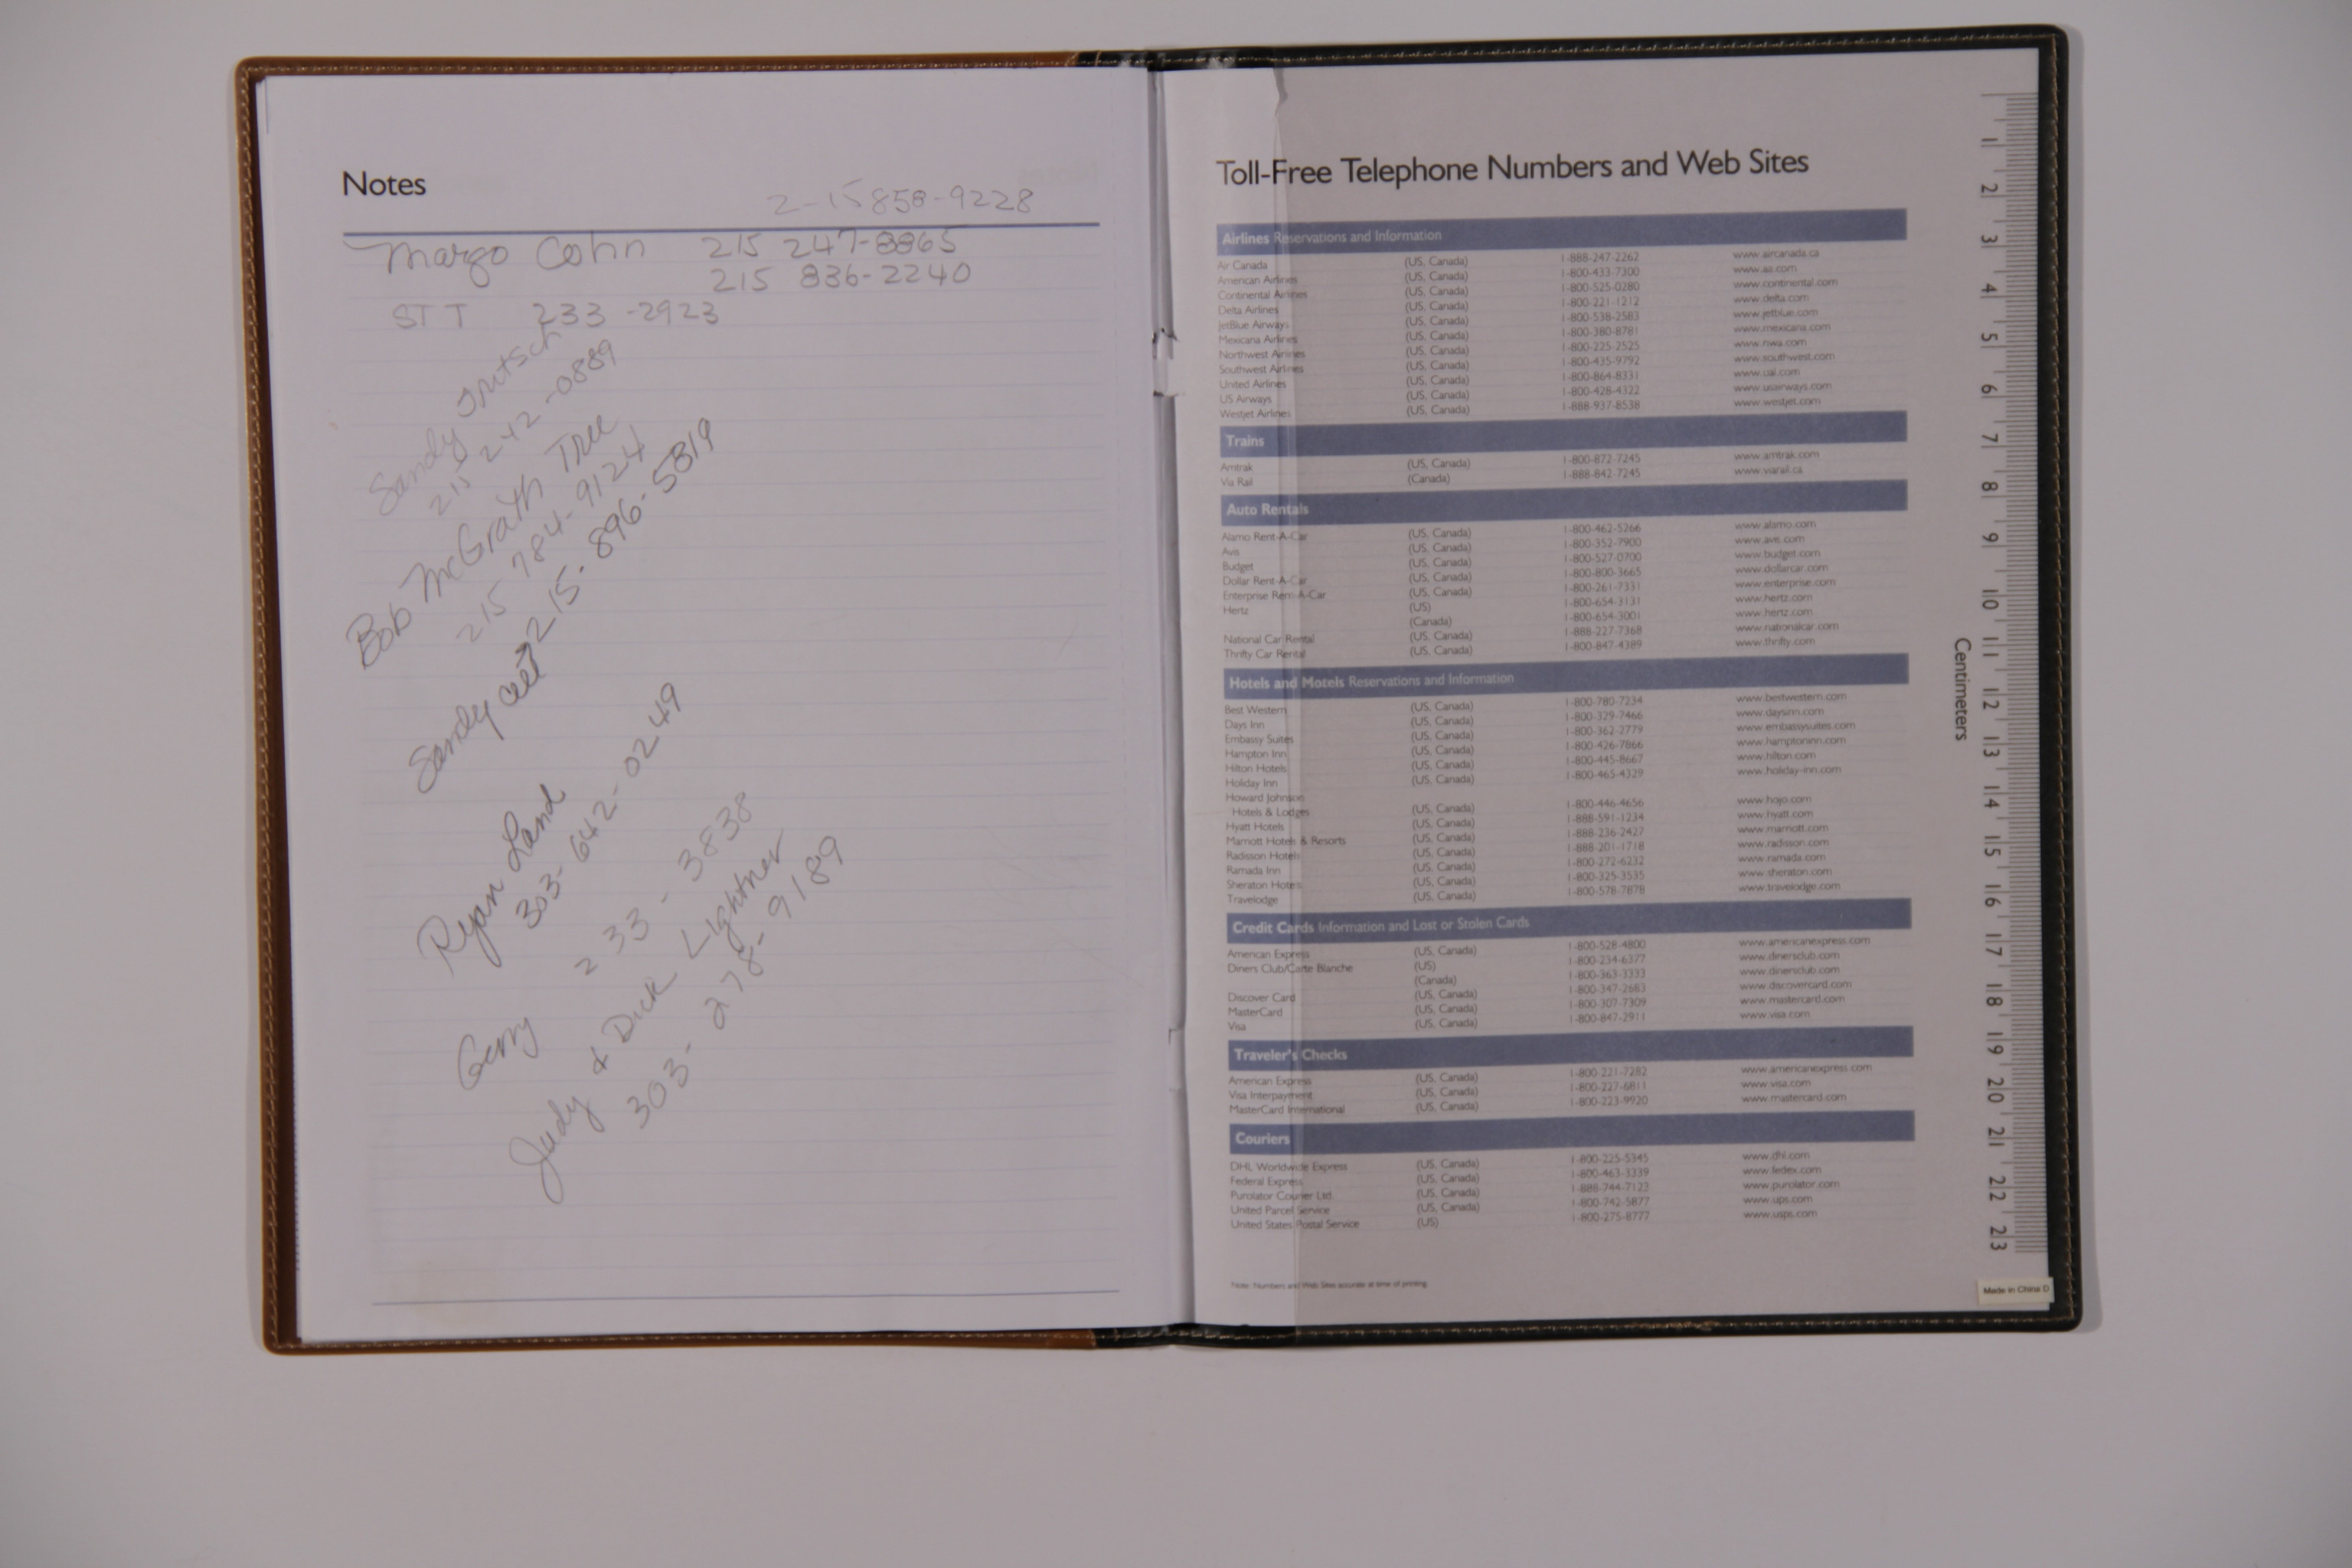 Notes
2-15 858-9228
Margo Cohn 215 247-8865
215 836-2240
STT 233-2923
Sandy
215 242-0889
Bob McGrath Tree
215 784-9124
Sandy cell 215-896-5819
Ryan Land
303-642-0249
Gerry 233-3838
Judy & Dick Lightner
303-278-9189
Toll-Free Telephone Numbers and Web Sites
Airlines Reservations and Information
Air Canada (US, Canada) 1-888-247-2262 www.aircanada.ca
American Airlines (US, Canada) 1-800-433-7300 www.aa.com
Continental Airlines (US, Canada) 1-800-525-0280 www.continental.com
Delta Airlines (US, Canada) 1-800-221-1212 www.delta.com
JetBlue Airways (US, Canada) 1-800-538-2583 www.jetblue.com
Mexicana Airlines (US, Canada) 1-800-380-8781 www.mexicana.com
Northwest Airlines (US, Canada) 1-800-225-2525 www.nwa.com
Southwest Airlines (US, Canada) 1-800-435-9792 www.southwest.com
United Airlines (US, Canada) 1-800-864-8331 www.ual.com
US Airways (US, Canada) 1-800-428-4322 www.usairways.com
Westjet Airlines (US, Canada) 1-888-937-8538 www.westjet.com
Trains
Amtrak (US, Canada) 1-800-872-7245 www.amtrak.com
Via Rail (Canada) 1-888-842-7245 www.viarail.ca
Auto Rentals
Alamo Rent-A-Car (US, Canada) 1-800-462-5266 www.alamo.com
Avis (US, Canada) 1-800-352-7900 www.avis.com
Budget (US, Canada) 1-800-527-0700 www.budget.com
Dollar Rent-A-Car (US, Canada) 1-800-800-3665 www.dollarcar.com
Enterprise Rent-A-Car (US, Canada) 1-800-261-7331 www.enterprise.com
Hertz (US) 1-800-654-3131 www.hertz.com
(Canada) 1-800-654-3001 www.hertz.com
National Car Rental (US, Canada) 1-888-227-7368 www.nationalcar.com
Thrifty Car Rental (US, Canada) 1-800-847-4389 www.thrifty.com
Hotels and Motels Reservations and Information
Best Western (US, Canada) 1-800-780-7234 www.bestwestern.com
Days Inn (US, Canada) 1-800-329-7466 www.daysinn.com
Embassy Suites (US, Canada) 1-800-362-2779 www.embassysuites.com
Hampton Inn (US, Canada) 1-800-426-7866 www.hamptoninn.com
Hilton Hotels (US, Canada) 1-800-445-8667 www.hilton.com
Holiday Inn (US, Canada) 1-800-465-4329 www.holiday-inn.com
Howard Johnson
Hotels & Lodges (US, Canada) 1-800-446-4656 www.hojo.com
Hyatt Hotels (US, Canada) 1-888-591-1234 www.hyatt.com
Marriott Hotels & Resorts (US, Canada) 1-888-236-2427 www.marriott.com
Radisson Hotels (US, Canada) 1-888-201-1718 www.radisson.com
Ramada Inn (US, Canada) 1-800-272-6232 www.ramada.com
Sheraton Hotels (US, Canada) 1-800-325-3535 www.sheraton.com
Travelodge (US, Canada) 1-800-578-7878 www.travelodge.com
Credit Cards Information and Lost or Stolen Cards
American Express (US, Canada) 1-800-528-4800 www.americanexpress.com
Diners Club/Carte Blanche (US) 1-800-234-6377 www.dinersclub.com
(Canada) 1-800-363-3333 www.dinersclub.com
Discover Card (US, Canada) 1-800-347-2683 www.discovercard.com
MasterCard (US, Canada) 1-800-307-7309 www.mastercard.com
Visa (US, Canada) 1-800-847-2911 www.visa.com
Traveler's Checks
American Express (US, Canada) 1-800-221-7282 www.americanexpress.com
Visa Interpayment (US, Canada) 1-800-227-6811 www.visa.com
MasterCard International (US, Canada) 1-800-223-9920 www.mastercard.com
Couriers
DHL Worldwide Express (US, Canada) 1-800-225-5345 www.dhl.com
Federal Express (US, Canada) 1-800-463-3339 www.fedex.com
Purolator Courier Ltd. (US, Canada) 1-888-744-7123 www.purolator.com
United Parcel Service (US, Canada) 1-800-742-5877 www.ups.com
United States Postal Service (US) 1-800-275-8777 www.usps.com
Note: Numbers and Web Sites accurate at time of printing.
Centimeters
1 2 3 4 5 6 7 8 9 10 11 12 13 14 15 16 17 18 19 20 21 22 23
Made in China D